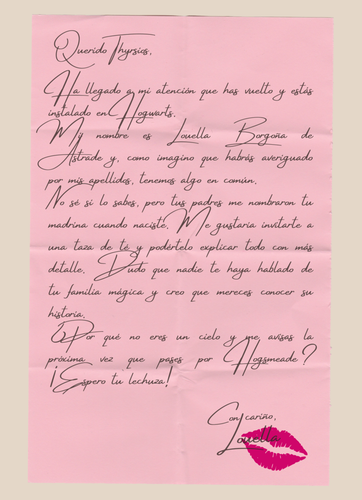 Querido Thyrsios,
Ha llegado a mi atención que has vuelto y estás
instalado en Hogwarts.
Mi nombre es Louella Borgoña de
Astrade y, como imagino que habrás averiguado
por mis apellidos, tenemos algo en común.
No sé si lo sabes, pero tus padres me nombraron tu
madrina cuando naciste. Me gustaría invitarte a
una taza de té y podértelo explicar todo con más
detalle. Dudo que nadie te haya hablado de
tu familia mágica y creo que mereces conocer su
historia.
¿Por qué no eres un cielo y me avisas la
próxima vez que pases por Hogsmeade?
¡Espero tu lechuza!
Con cariño,
Louella